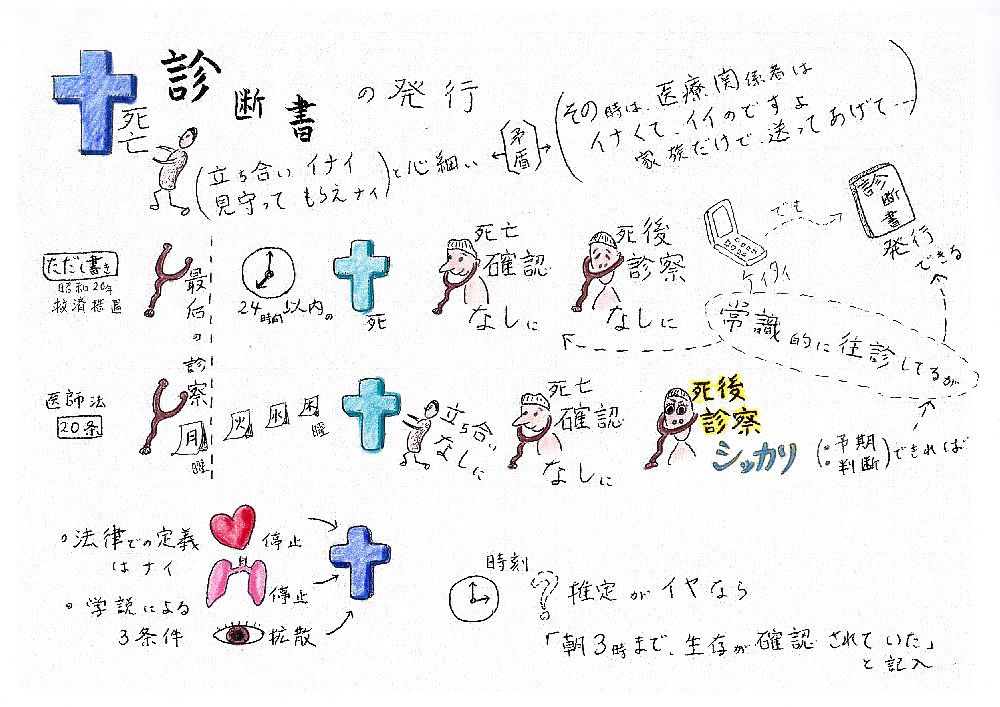 死亡
診断書の発行
(立ち合いイナイ
見守ってもらえナイ)と心細い
矛盾
(その時は、医療関係者は
イナくて、イイのですよ
家族だけで、送ってあげて…)
ただし書き
昭和20年
救済措置
最後の診察
24時間以内の
死
死亡
確認
なしに
死後
診察
なしに
ケイタイ
でも
診断書
発行
できる
常識的に往診してるが
医師法
20条
月
曜
火
水
木
曜
立ち合い
なしに
死亡
確認
なしに
死後
診察
シッカリ
(・予期
・判断)できれば
○法律での定義
はナイ
○学説による
3条件
停止
停止
拡散
時刻
?
推定がイヤなら
「朝3時まで、生存が確認されていた」
と記入